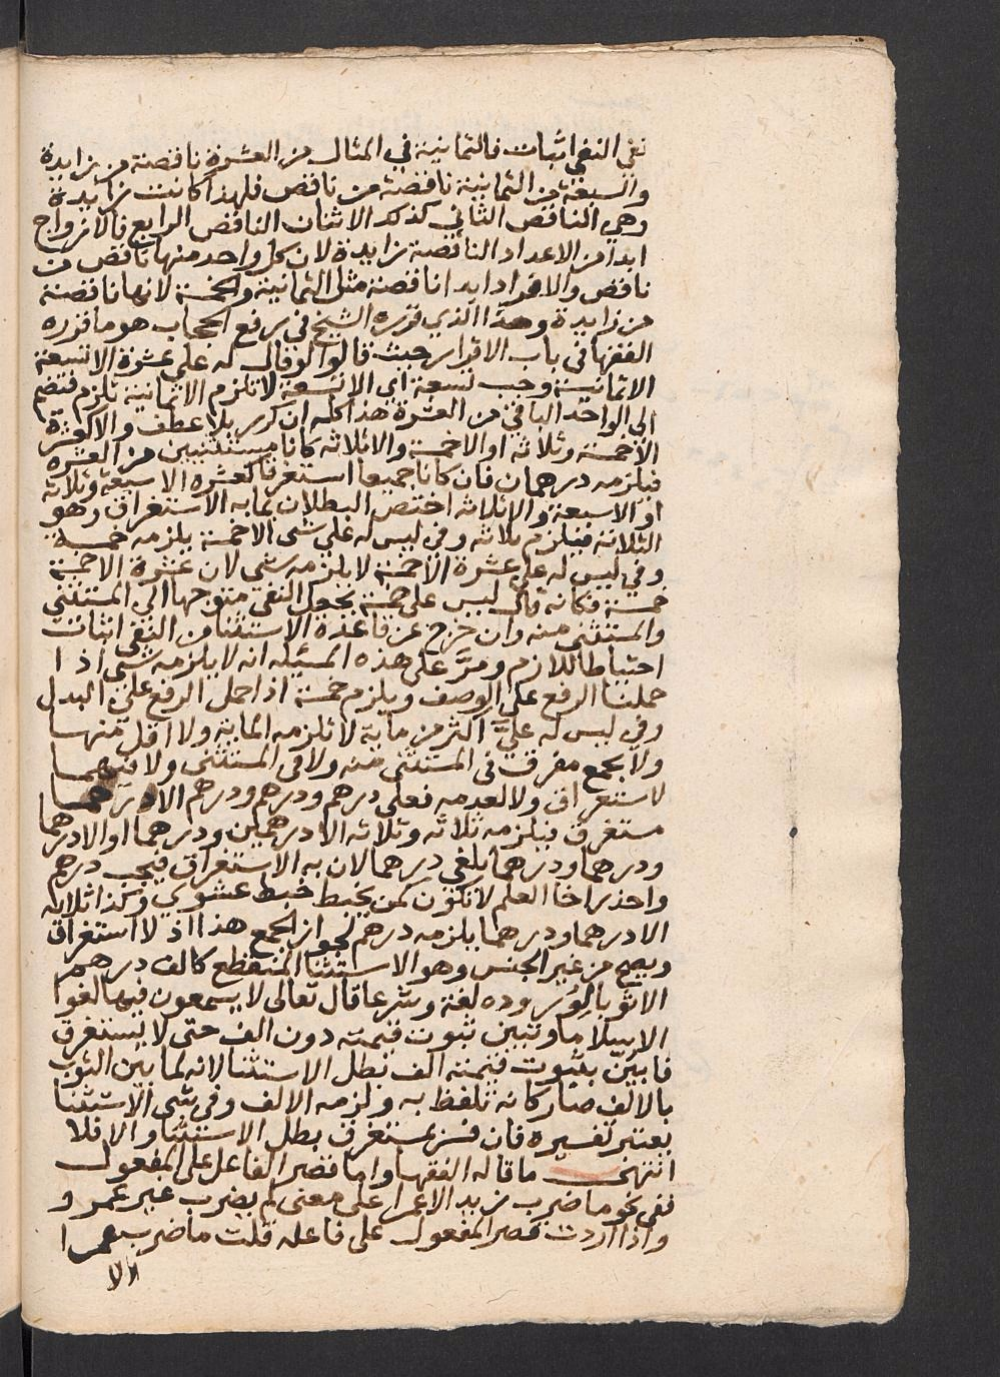 نفي النفي اثبات فالثمانية في المثال من العشرة ناقصة من زايدة
والسبعة من الثمانية ناقصة من ناقص فلهذا كانت زايدة
وهي الناقص الثاني كذلك الاثنان الناقص الرابع فالازواج
ابدا من الاعداد الناقصة زايدة لان كل واحد منها ناقص من
ناقص والافراد ابدا ناقصة مثل الثمانية والخمسة لانها ناقصة
من زايدة وهذا الذي قرره الشيخ في رفع الحجاب هو ما قرره
الفقها في باب الاقرار حيث قالوا لو قال له علي عشرة الا تسعة
الا ثمانية وجب تسعة اي الا تسعة لا تلزم الا ثمانية تلزم فتضم
الى الواحد الباقي من العشرة هذا كله ان كرر بلا عطف والا كعشرة
الا خمسة وثلاثة او الا خمسة والا ثلاثة كانا مستثنيين من العشرة
فيلزمه درهمان فان كانا جميعا استغرقا كعشرة الا سبعة وثلاثة
او الا سبعة والا ثلاثة اختص البطلان بما به الاستغراق وهو
الثلاثة فيلزم ثلاثة وفي ليس له علي شي الا خمسة يلزمه خمسة
وفي ليس له علي عشرة الا خمسة لا يلزمه شي لان عشرة الا خمسة
خمسة فكانه قال ليس علي خمسة بجعل النفي متوجها الى المستثنى
والمستثنى منه وان خرج عن قاعدة الاستثنا من النفي اثبات
احتياطا للازم ومر على هذه المسئلة انه لا يلزمه شي اذا
حملنا الرفع على الوصف ويلزم خمسة اذا حمل الرفع على البدل
وفي ليس له عليّ اكثر من ماية لا تلزمه الماية ولا اقل منها
ولا يجمع مفرق في المستثنى منه ولا في المستثنى ولا فيهما
لاستغراق ولا لعدمه فعلي درهم ودرهم ودرهم الا درهما
مستغرق فيلزمه ثلاثة وثلاثة الا درهمين ودرهما او الا درهما
ودرهما ودرهما يلغي درهما لان به الاستغراق فيجب درهم
واحذر اخا العلم لا تكون كمن يخبط خبط عشوى وكذا ثلاثة
الا درهما ودرهما يلزمه درهم لجواز الجمع هذا اذ لا استغراق
ويصح من غير الجنس وهو الاستثنا المنقطع كالف درهم
الا ثوبا لوروده لغة وشرعا قال تعالى لا يسمعون فيها لغوا
الا سلاما وتبين بثوب قيمته دون الف حتى لا يستغرق
فا بيّن بثوب قيمته الف بطل الاستثنا لانه لما بيّن الثوب
بالالف صار كانه تلفظ به ولزمه الالف وفي شي الاستثنا
يعتبر تفسيره فان فسر بمستغرق بطل الاستثنا والا فلا
انتهى ما قاله الفقها واما قصر الفاعل على المفعول
ففي نحو ما ضرب زيد الا عمرا على معنى لم يضرب غير عمرو
واذا اردت قصر المفعول على فاعله قلت ما ضرب عمرا
الا